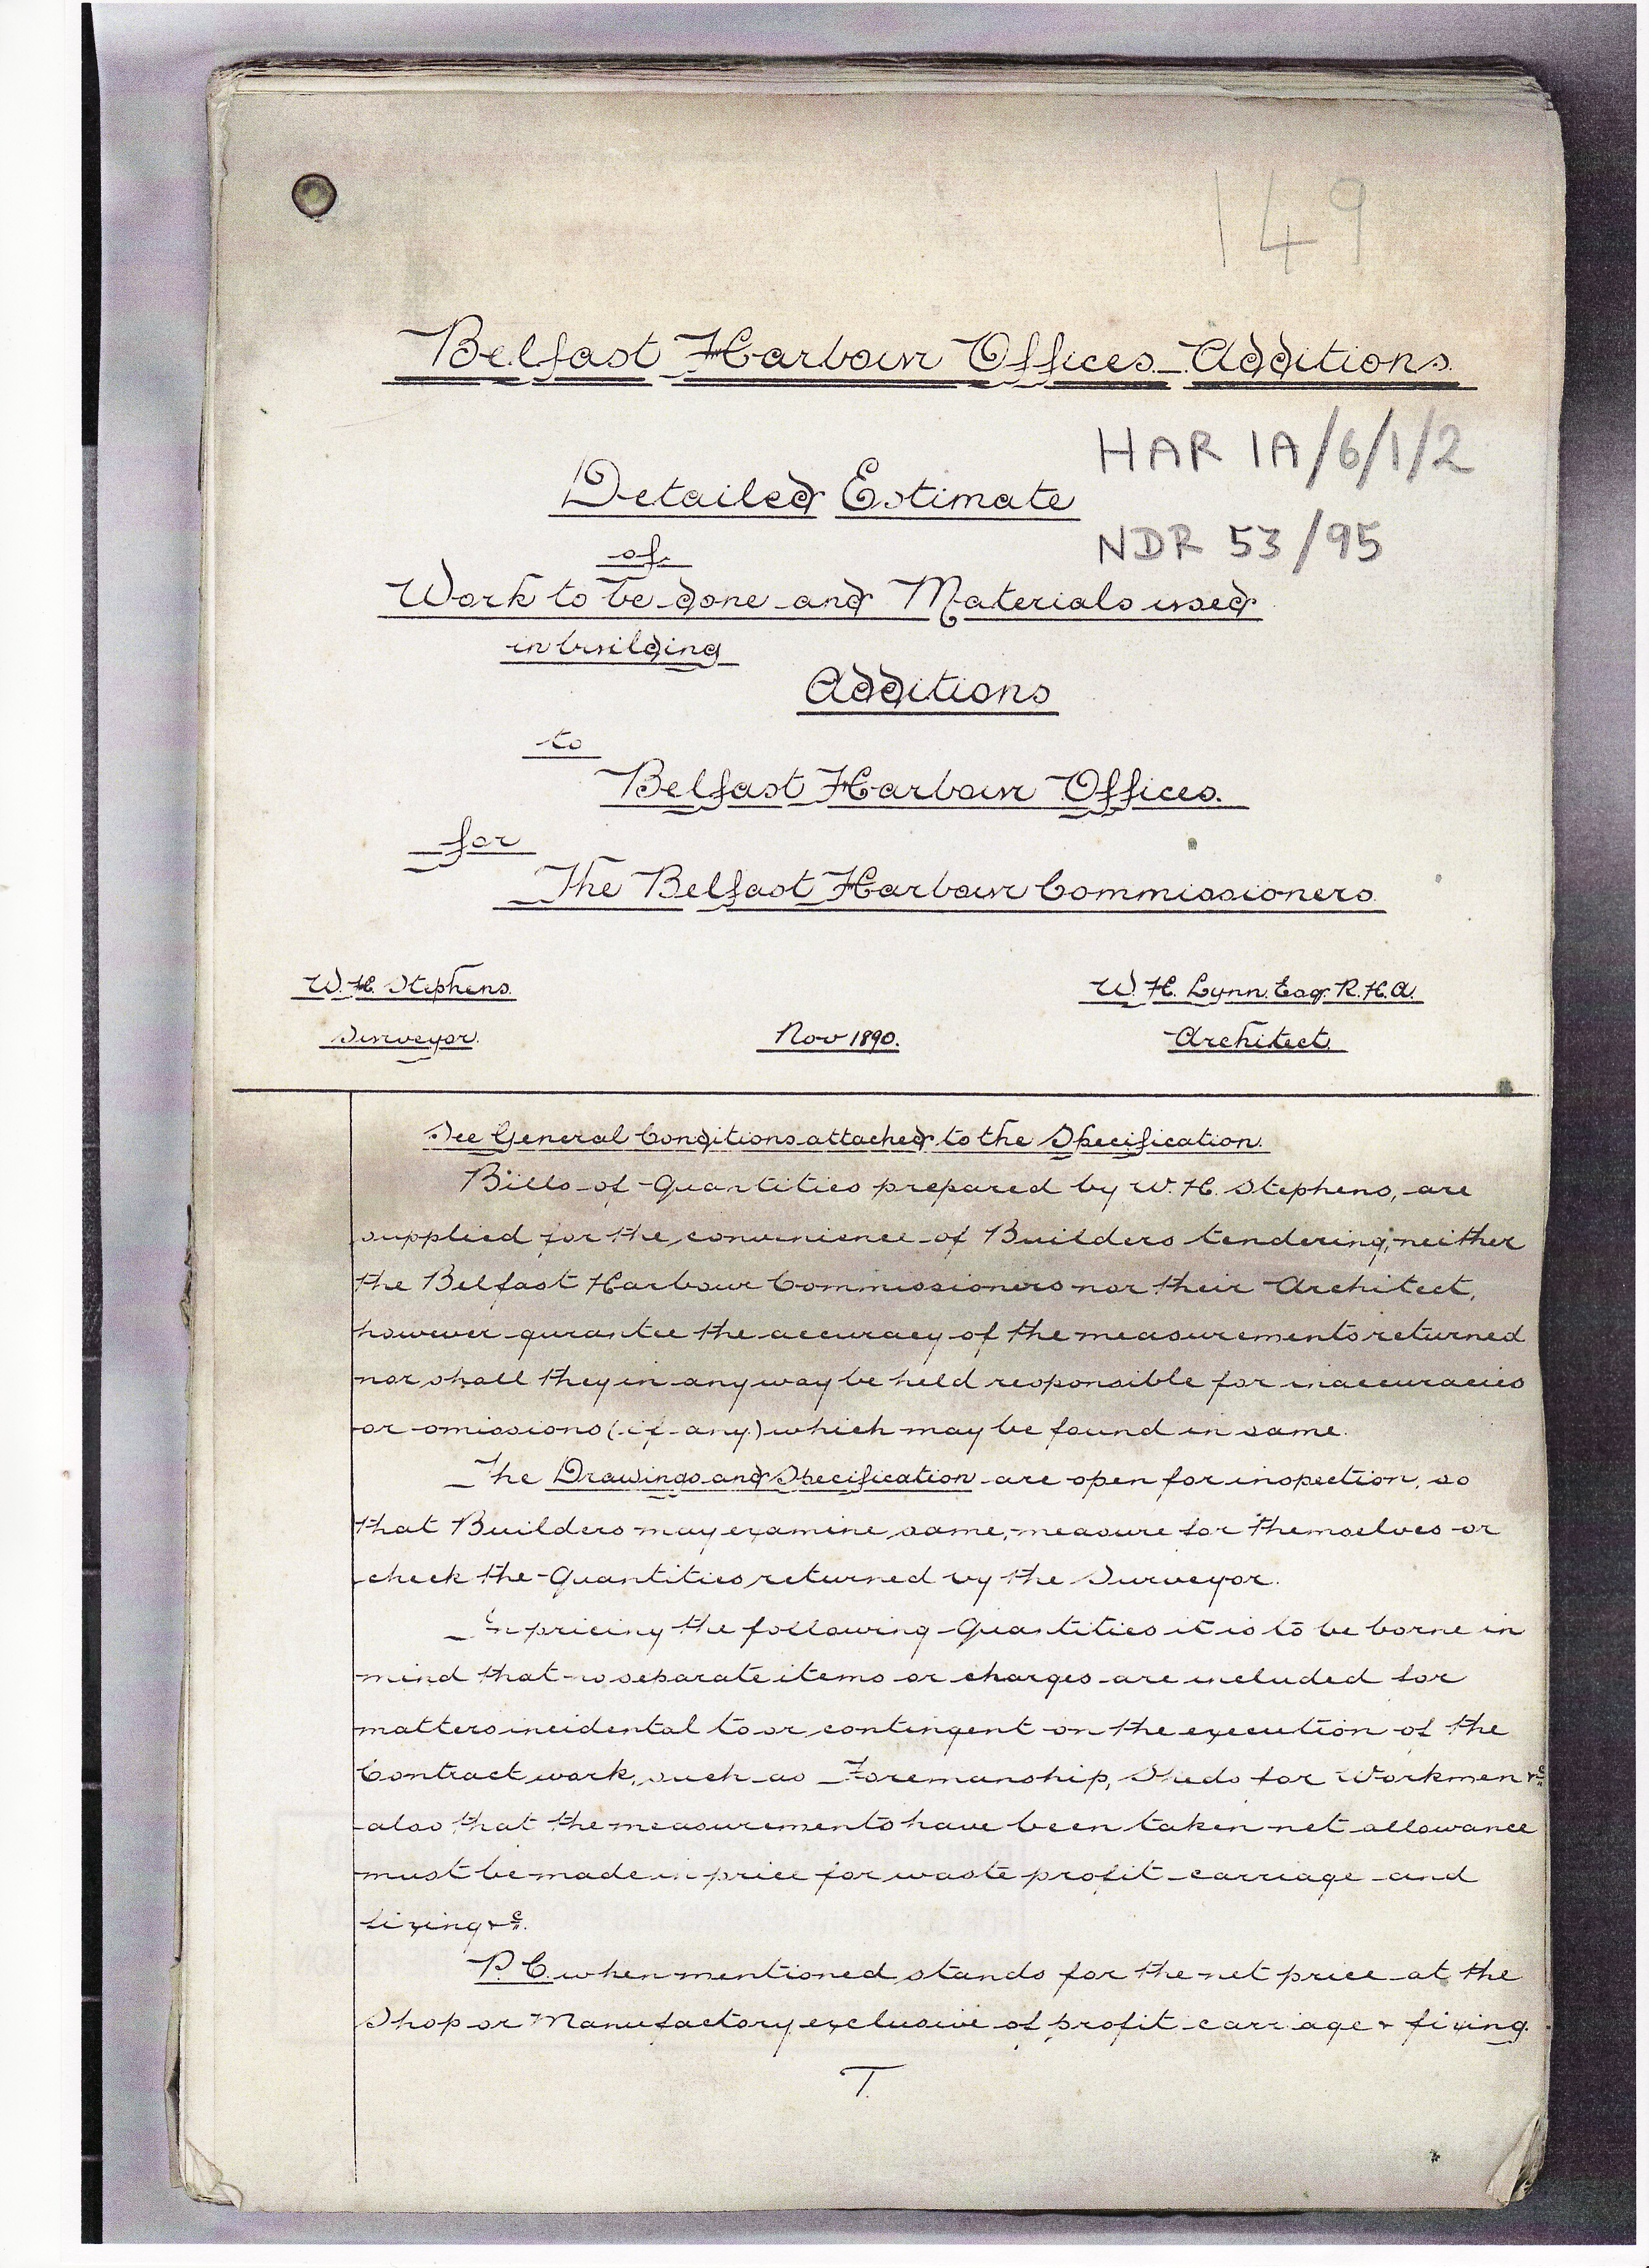 149
Belfast Harbour Offices Additions.
HAR 1A/6/1/2
Detailed Estimate
NDR 53/95
of
Work to be done and Materials used
in building
Additions
to
Belfast Harbour Offices.
for
The Belfast Harbour Commissioners
W. H. Stephens.
Surveyor.
Nov 1890.
W. H. Lynn. Esqr. R. H. A.
Architect.
See General Conditions attached to the Specification.
Bills of Quantities prepared by W. H. Stephens, are
supplied for the convenience of Builders tendering, neither
the Belfast Harbour Commissioners nor their Architect,
however gurantee the accuracy of the measurements returned
nor shall they in any way be held responsible for inaccuracies
or omissions (if any) which may be found in same.
The Drawings and Specification are open for inspection, so
that Builders may examine same, measure for themselves or
check the Quantities returned by the Surveyor.
In pricing the following Quantities it is to be borne in
mind that no separate items or charges are included for
matters incidental to or contingent on the execution of the
Contract work, such as Foremanship, Sheds for Workmen &c
also that the measurements have been taken net allowance
must be made in price for waste profit carriage and
fixing &c.
P. C. when mentioned stands for the net price at the
Shop or Manufactory exclusive of profit carriage & fixing.